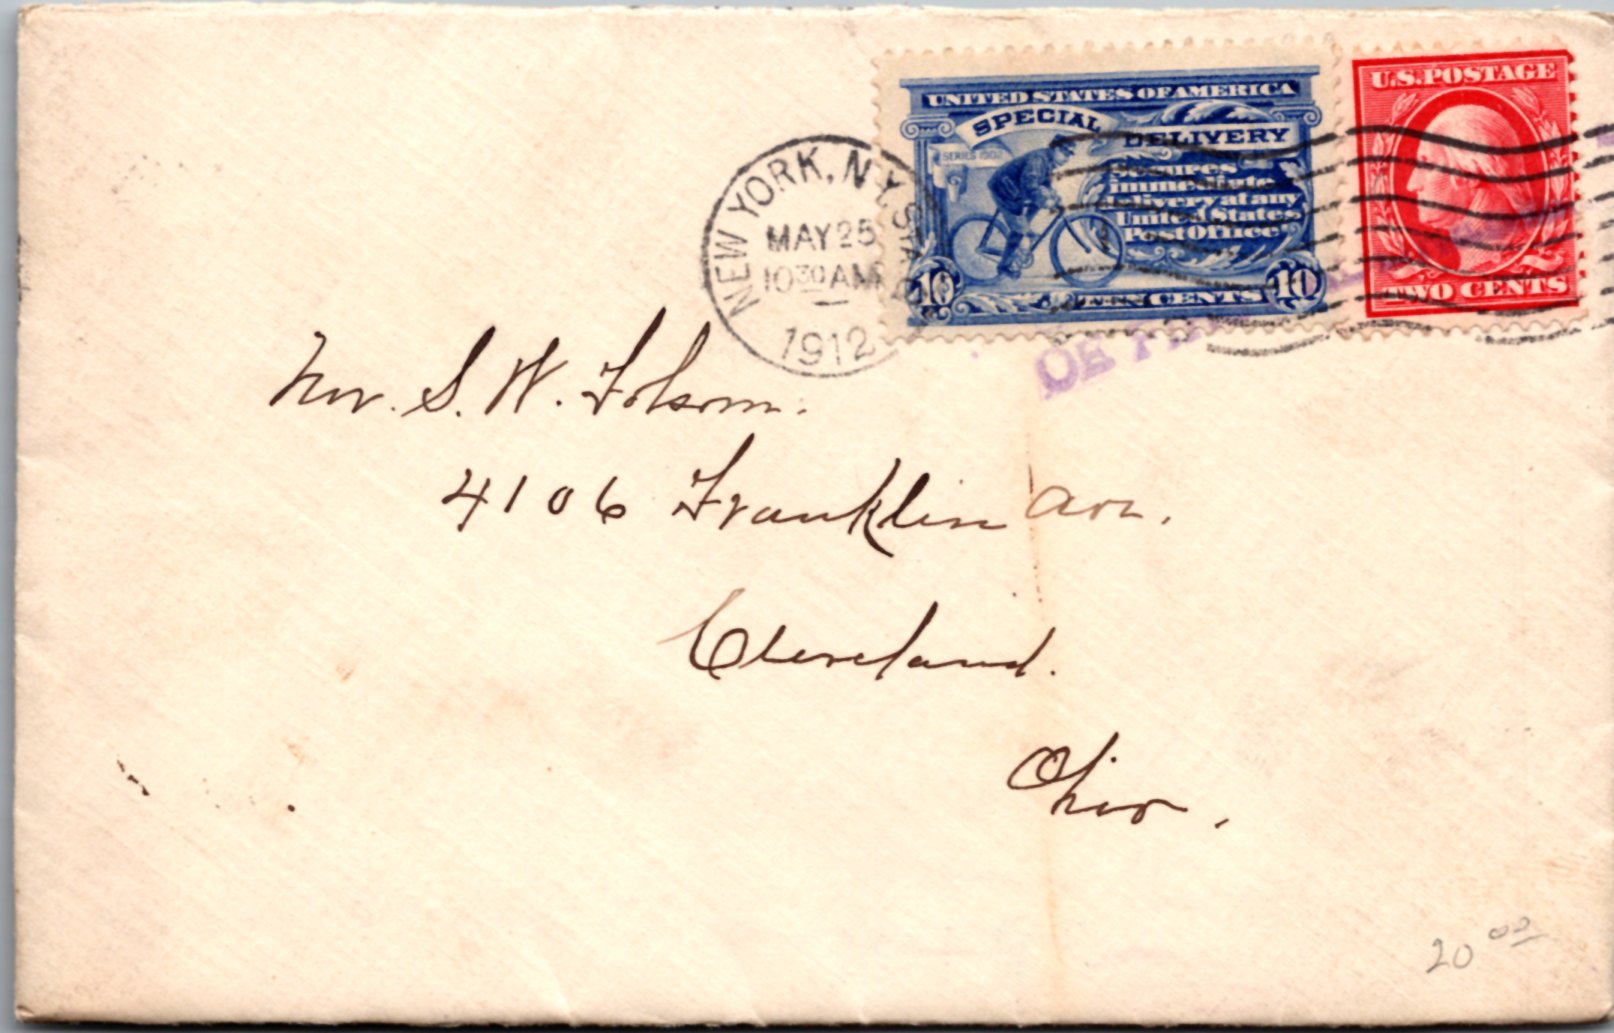 UNITED STATES OF AMERICA
SPECIAL DELIVERY
SERIES 1902
Secures
immediate
delivery at any
United States
Post Office
10 CENTS 10
U.S. POSTAGE
TWO CENTS
NEW YORK, N.Y. STA
MAY 25
10 30 AM
1912
OF
Mr. S. W. Folsom.
4106 Franklin Ave.
Cleveland.
Ohio.
20 00